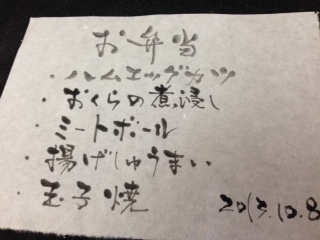 お弁当
・ハムエッグカツ
・おくらの煮浸し
・ミートボール
・揚げしゅうまい
・玉子焼
2013.10.8